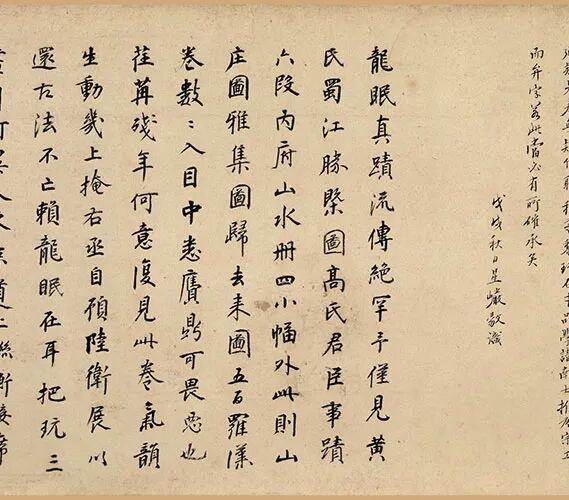 而弁字若此當必有所確承矣
戊戌秋日星巖敬識
龍眠真蹟流傳絕罕予僅見黃
氏蜀江勝槩圖高氏君臣事蹟
六段內府山水冊四小幅外此則山
庄圖雅集圖歸去來圖五百羅漢
卷數〻入目中悉贋鼎可畏惡也
荏苒殘年何意復見此卷氣韻
生動幾上掩右丞自顧陸衛展以
還古法不亡賴龍眠在耳把玩三